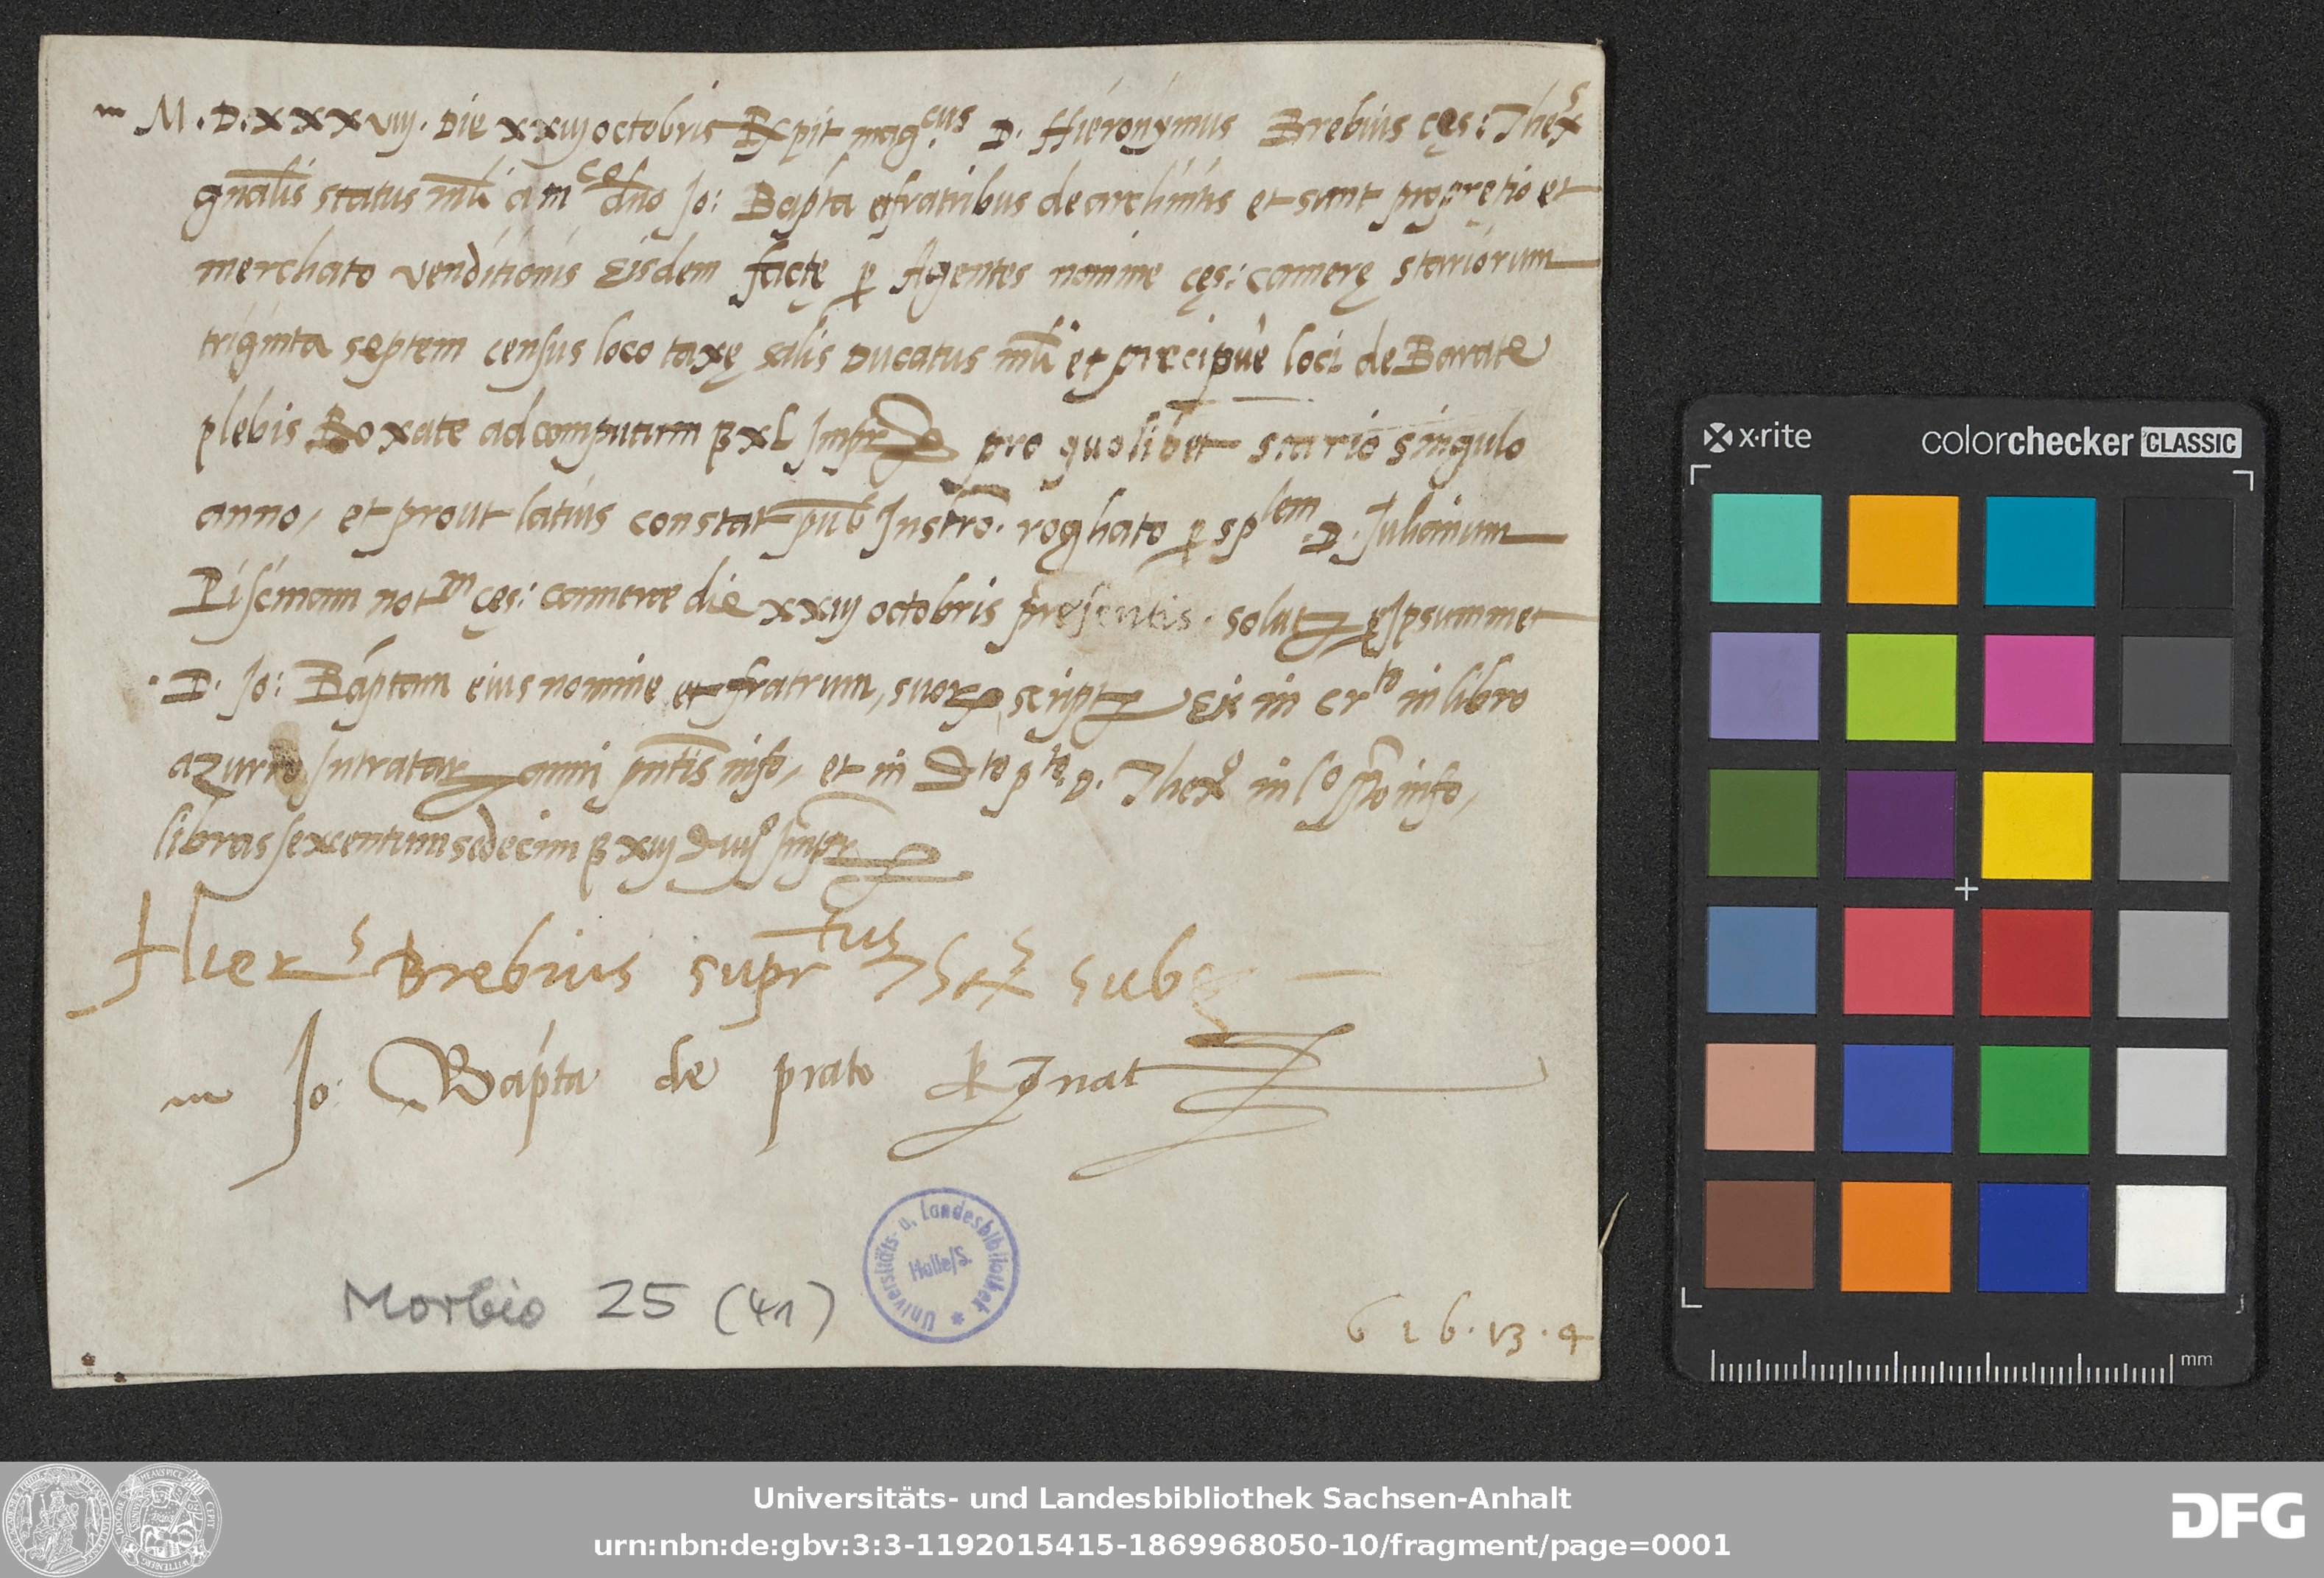 M.D.XXXVIIJ. Die xxiij octobris Excepit mag.cus D. Hieronymus Brebius cęs: Thex.s
gnālis status mli a mco dno Jo: Bapta et fratribus de archintis et sunt pro prętio et
merchato venditionis Eisdem factę p Agentes nomine cęs: camerę stariorum
triginta septem census loco taxę salis Ducatus mli et precipue loci de Barate
plebis Roxate ad computum ß xl Imp pro quolibet stario singulo
anno, et prout latius constat pub Instro. roghato p splem. D. Julianum
Piscinam notm cęs: camerae die xxiij octobris presentis. solut p Ipsummet
D. Jo: Baptam eius nomine et fratrum, suor script in crto in libro
azurro Intratar anni pntis info, et in Dto pto. D. Thexo in info,
libras sexcentum sedecim ß xiij d iiijo Impr
Hiers Brebius suprtus subs
Jo: Bapta de prato Rgnat
Morbio 25 (41)
Universitäts- u. Landesbibliothek
Halle/S.
616.13.4
x·rite colorchecker CLASSIC
mm
Universitäts- und Landesbibliothek Sachsen-Anhalt
urn:nbn:de:gbv:3:3-1192015415-1869968050-10/fragment/page=0001
DFG